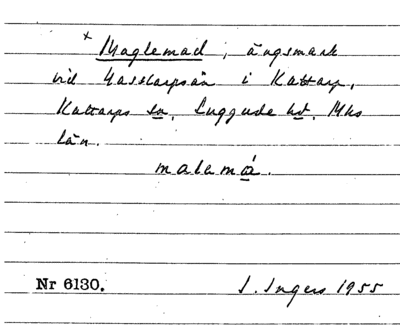 x Maglemad, ängsmark
vid Hasslarpsån i Kattarp,
Kattarps sn, Luggude hd, Mhs
län.
malamá.
Nr 6130. I. Ingers 1955